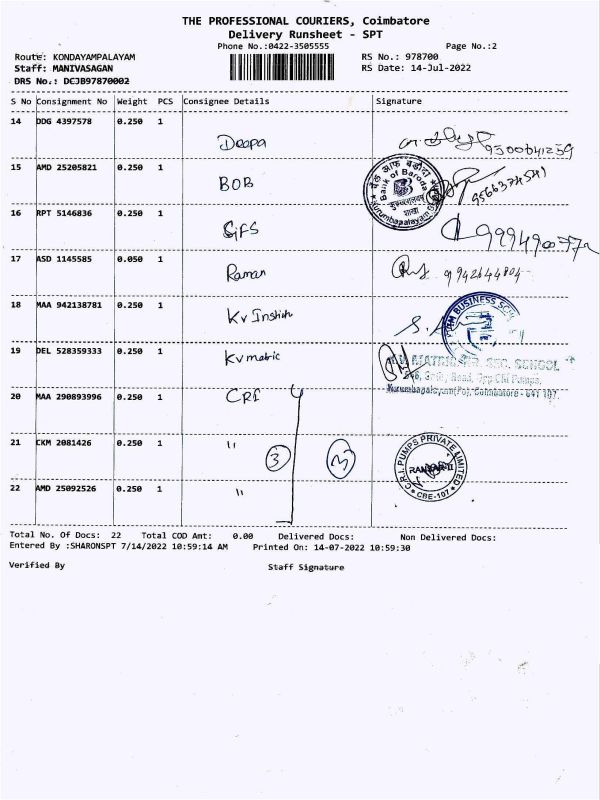 THE PROFESSIONAL COURIERS, Coimbatore
Delivery Runsheet - SPT
Phone No.:0422-3505555 Page No.:2
Route: KONDAYAMPALAYAM RS No.: 978700
Staff: MANIVASAGAN RS Date: 14-Jul-2022
DRS No.: DCJB97870002
S No Consignment No Weight PCS Consignee Details Signature
14 DDG 4397578 0.250 1
Deepa
15 AMD 25205821 0.250 1
BOB
Bank of Baroda
शाखा
16 RPT 5146836 0.250 1
17 ASD 1145585 0.050 1
Raman 9942644804
18 MAA 942138781 0.250 1
Kv Institu
BUSINESS
19 DEL 528359333 0.250 1
Kv matric
MATRIC HR. SEC. SCHOOL
Kurumbapalayam(Po), Coimbatore - 641 107.
20 MAA 290893996 0.250 1
CRI
21 CKM 2081426 0.250 1
"
3
C.R.I. PUMPS PRIVATE LIMITED
CBE-107
22 AMD 25092526 0.250 1
"
Total No. Of Docs: 22 Total COD Amt: 0.00 Delivered Docs: Non Delivered Docs:
Entered By :SHARONSPT 7/14/2022 10:59:14 AM Printed On: 14-07-2022 10:59:30
Verified By Staff Signature